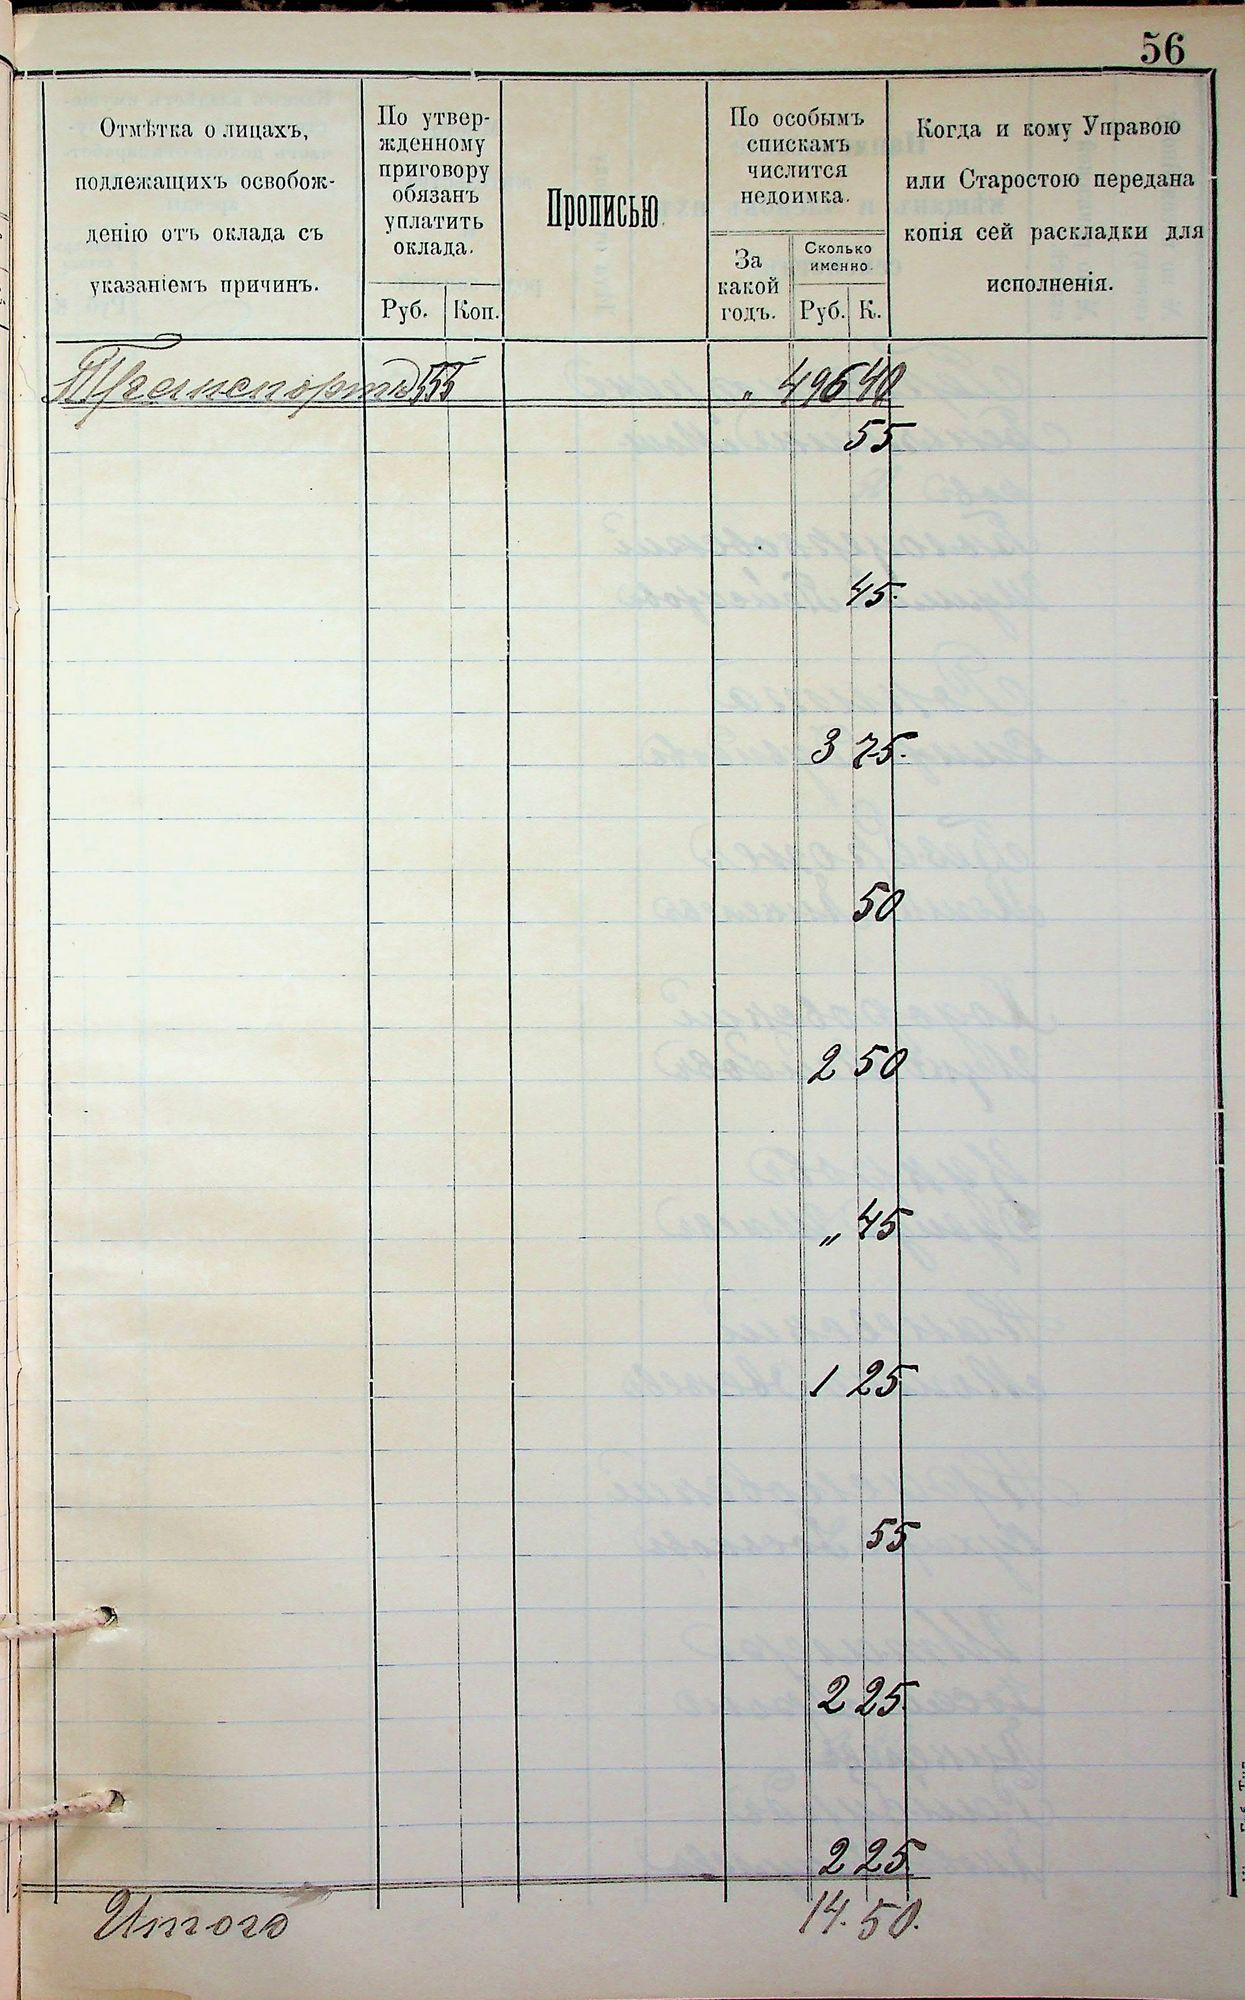 56
Отмѣтка о лицахъ,
подлежащихъ освобож-
денію отъ оклада съ
указаніемъ причинъ.
По утвер-
жденному
приговору
обязанъ
уплатить
оклада.
Руб. Коп.
Прописью
По особымъ
спискамъ
числится
недоимка.
За
какой
годъ.
Сколько
именно.
Руб. К.
Когда и кому Управою
или Старостою передана
копія сей раскладки для
исполненія.
Транспортъ 555 „ 496 40
55
45.
3 75.
50
2 50
„ 45
1 25
55
2 25
2 25
Итого 14. 50.